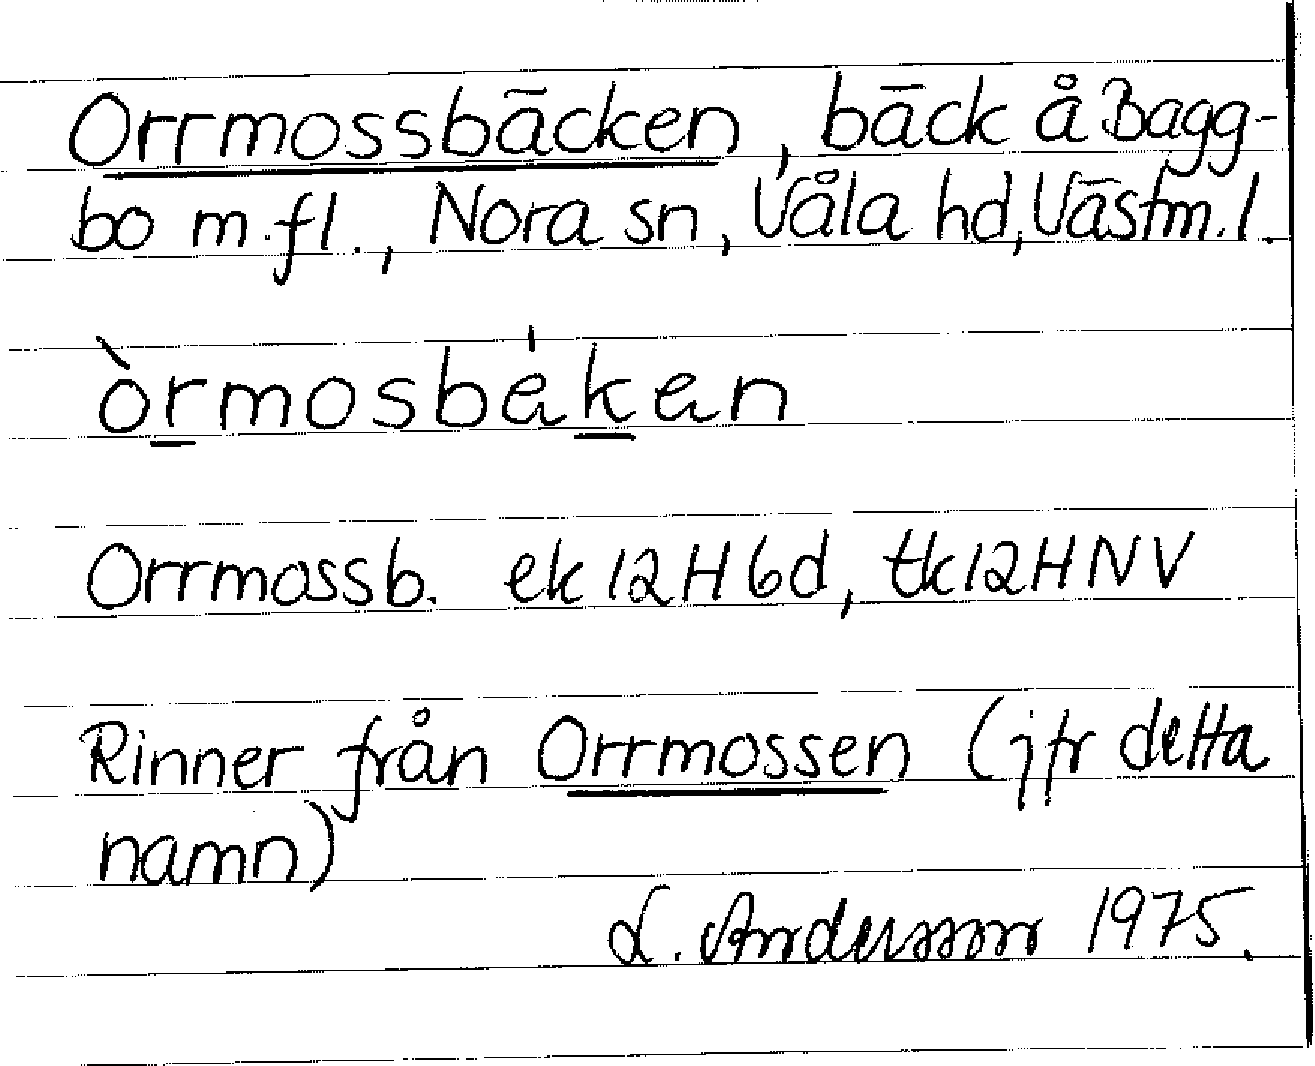 Orrmossbäcken, bäck å Bagg-
bo m.fl., Nora sn, Våla hd, Västm. l.
òrmosbékan
Orrmossb. ek 12H6d, tk 12HNV
Rinner från Orrmossen (jfr detta
namn)
L. Andersson 1975.